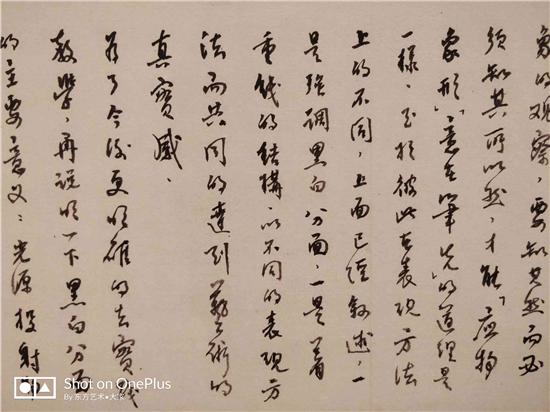 象的观察，要知其然而必
须知其所以然，才能「应物
象形」「意在筆先」的道理是
一樣、至於彼此在表现方法
上的不同，上面已经叙述，一
是强调黑白分面，一是着
重线的结構，以不同的表现方
法而共同的達到藝術的
真實感、
为了今後更明確的去實践
教學，再说明一下黑白分面
的主要意义：光源投射部
Shot on OnePlus
By 东方艺术